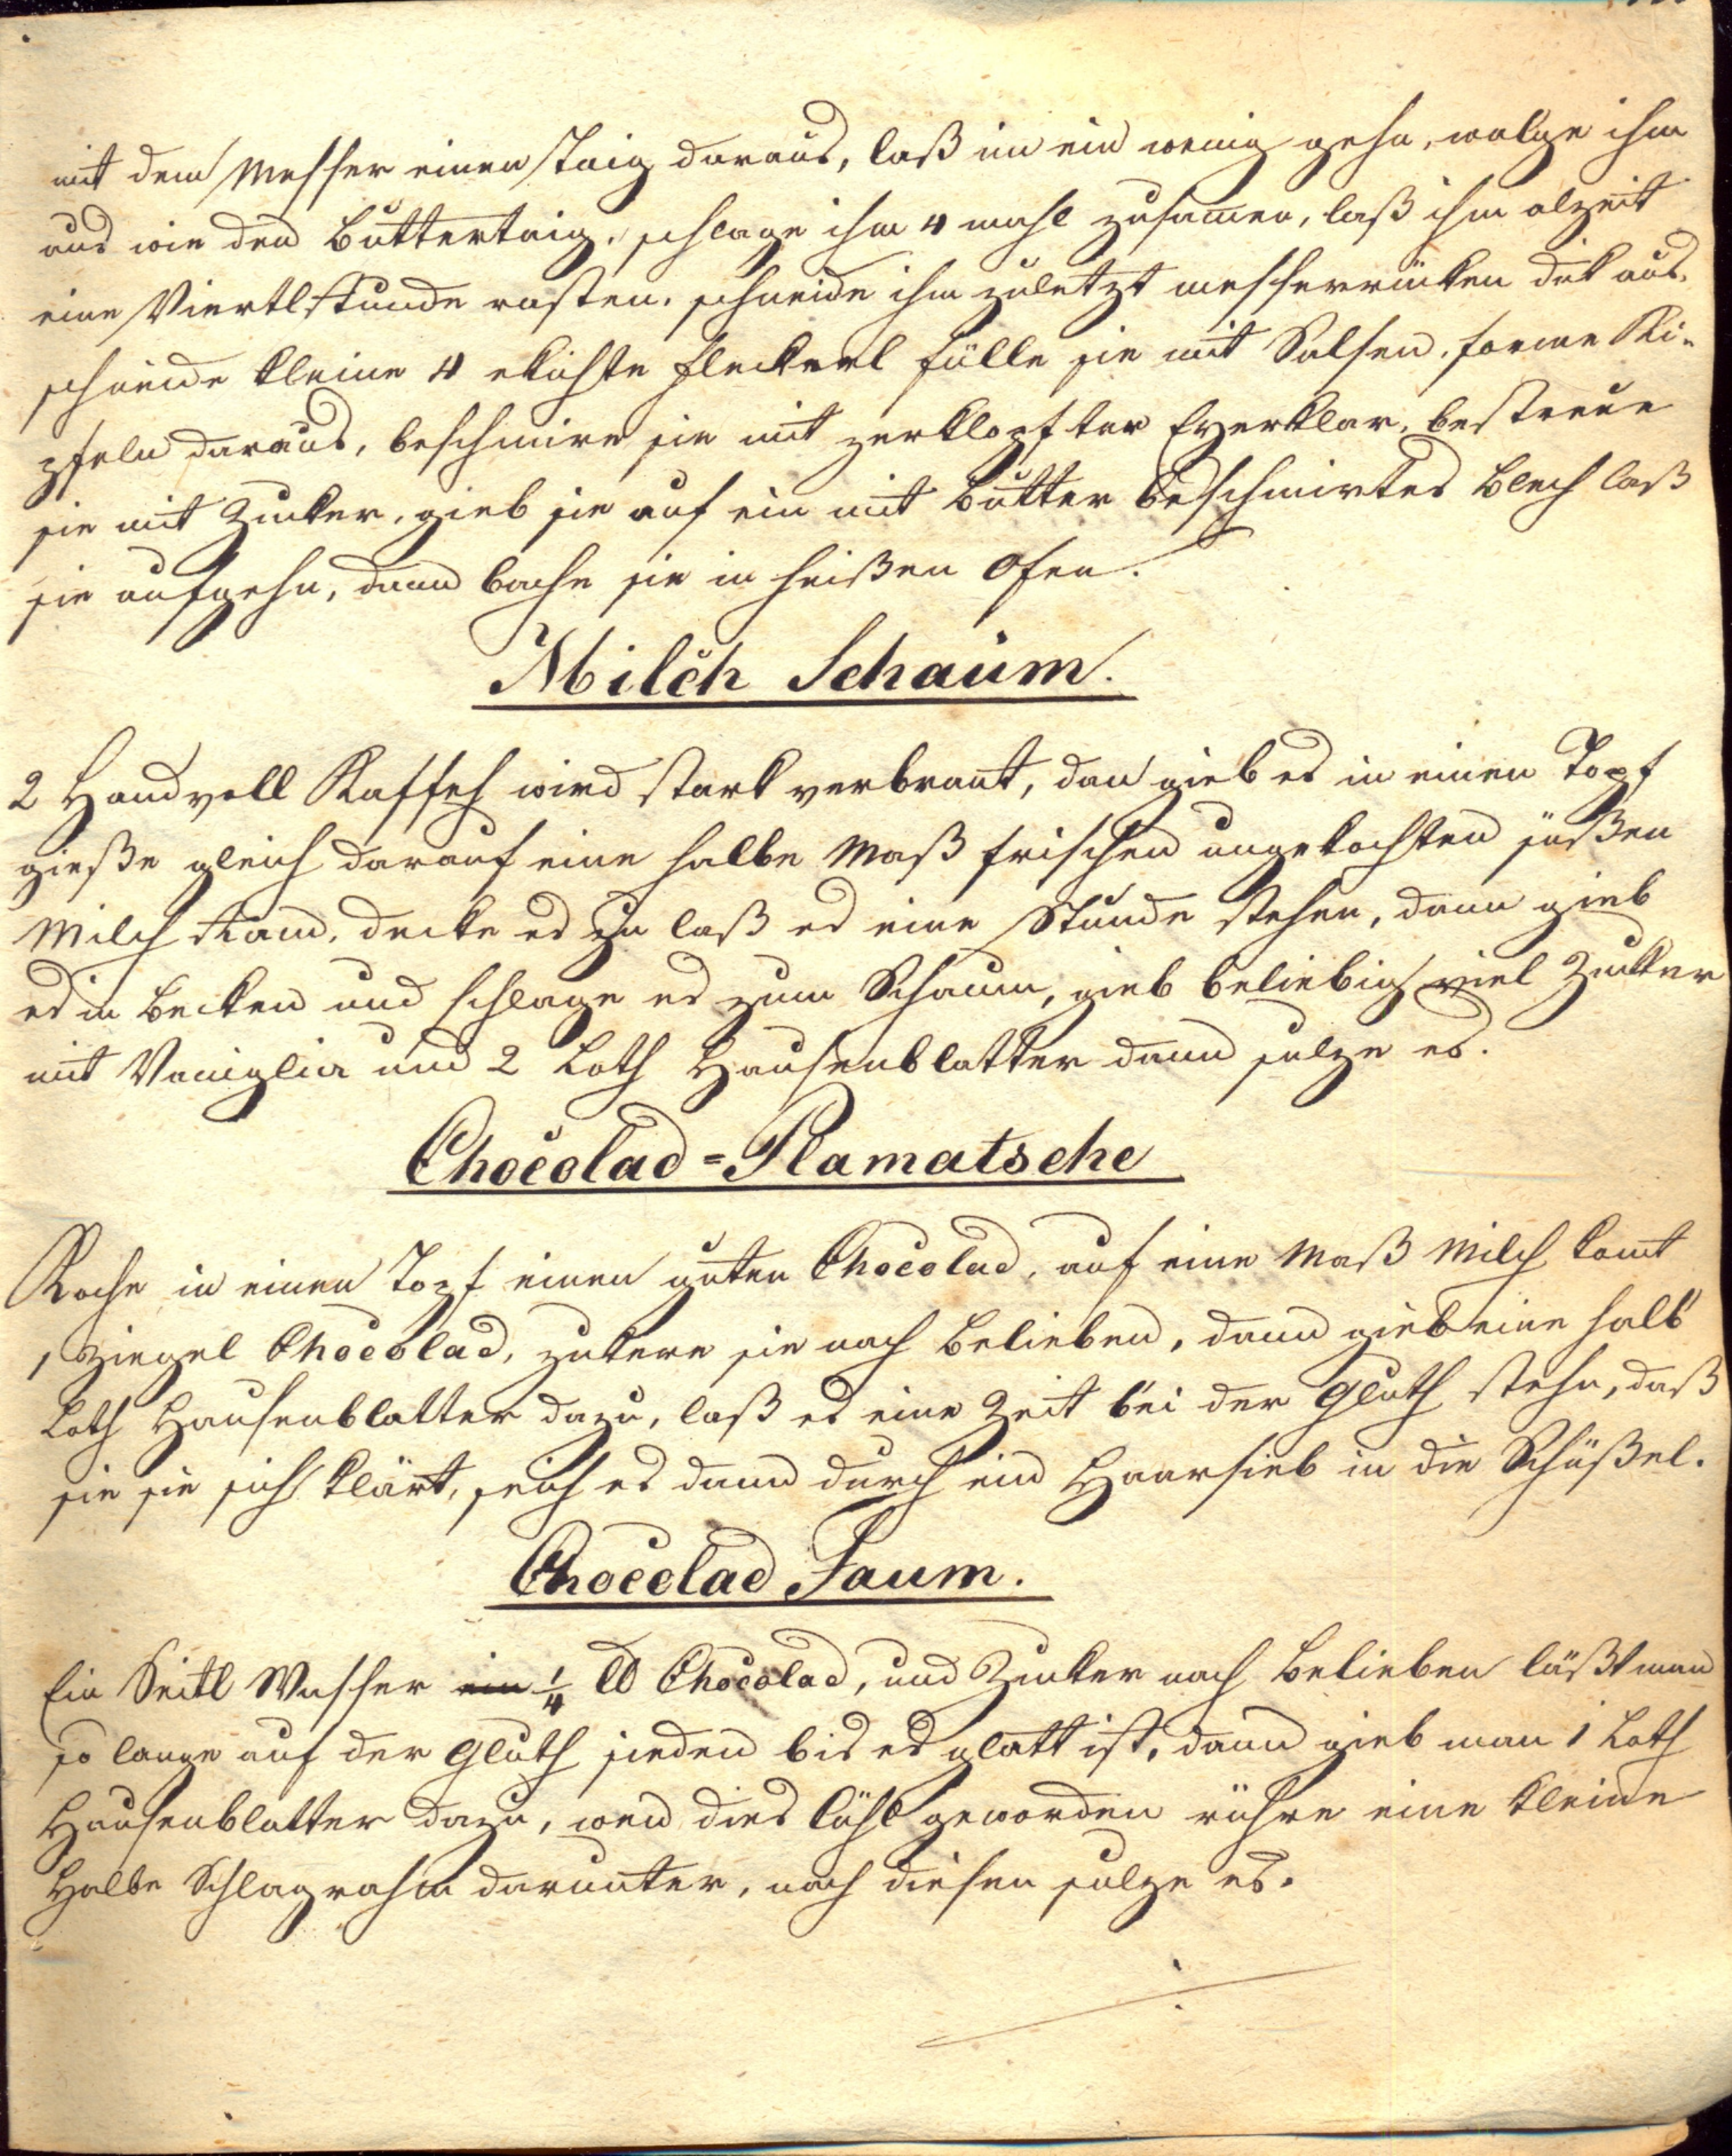 mit dem Messer einen Taig daraus, laß in ein wenig gehn, walge ihm
aus wie den Buttertaig, schlage ihm 4 mahl zusamen, laß ihm alzeit
eine Viertlstunde rasten. schneide ihm zuletzt messerrüken dik aus,
schneide kleine 4 ekichte Fleckerl fülle sie mit Salsen, forme Ki-
pfeln daraus, beschmire sie mit zerklopfter Eyerklar, bestreue
sie mit Zucker, gieb sie auf ein mit Butter beschmirtes Blech laß
sie aufgehn, dann bache sie in heißen Ofen.
Milch Schaum.
2 Handvoll Kaffeh wird stark verbrant, dan gieb es in einen Topf
gieße gleich darauf eine halbe Maß frischen ungekochten süßen
Milch Ram, decke es zu laß es eine Stunde stehen, dann gieb
es in Becken und schlage es zum Schaum, gieb beliebig viel Zucker
mit Vaniglia und 2 Loth Hausenblatter dann sulze es.
Chocolad=Plamatsche
Koche in einen Topf einen guten Chocolad, auf eine Maß Milch komt
1 Ziegel Chocolad, zukere sie nach Belieben, dann gieb eine halb
Loth Hausenblatter dazu, laß es eine Zeit bei der Gluth stehn, daß
sie sie sich klärt, seich es dann durch ein Haarsieb in die Schüßel.
Chocolad Faum.
Ein Seitl Wasser ein 1/4 ℔ Chocolad, und Zucker nach Belieben läßt man
so lange auf der Gluth sieden bis es glatt ist, dann gieb man 1 Loth
Hausenblatter dazu, wen dies kühl geworden rühre eine kleine
Halbe Schlagrahm darunter, nach diesen sulze es.